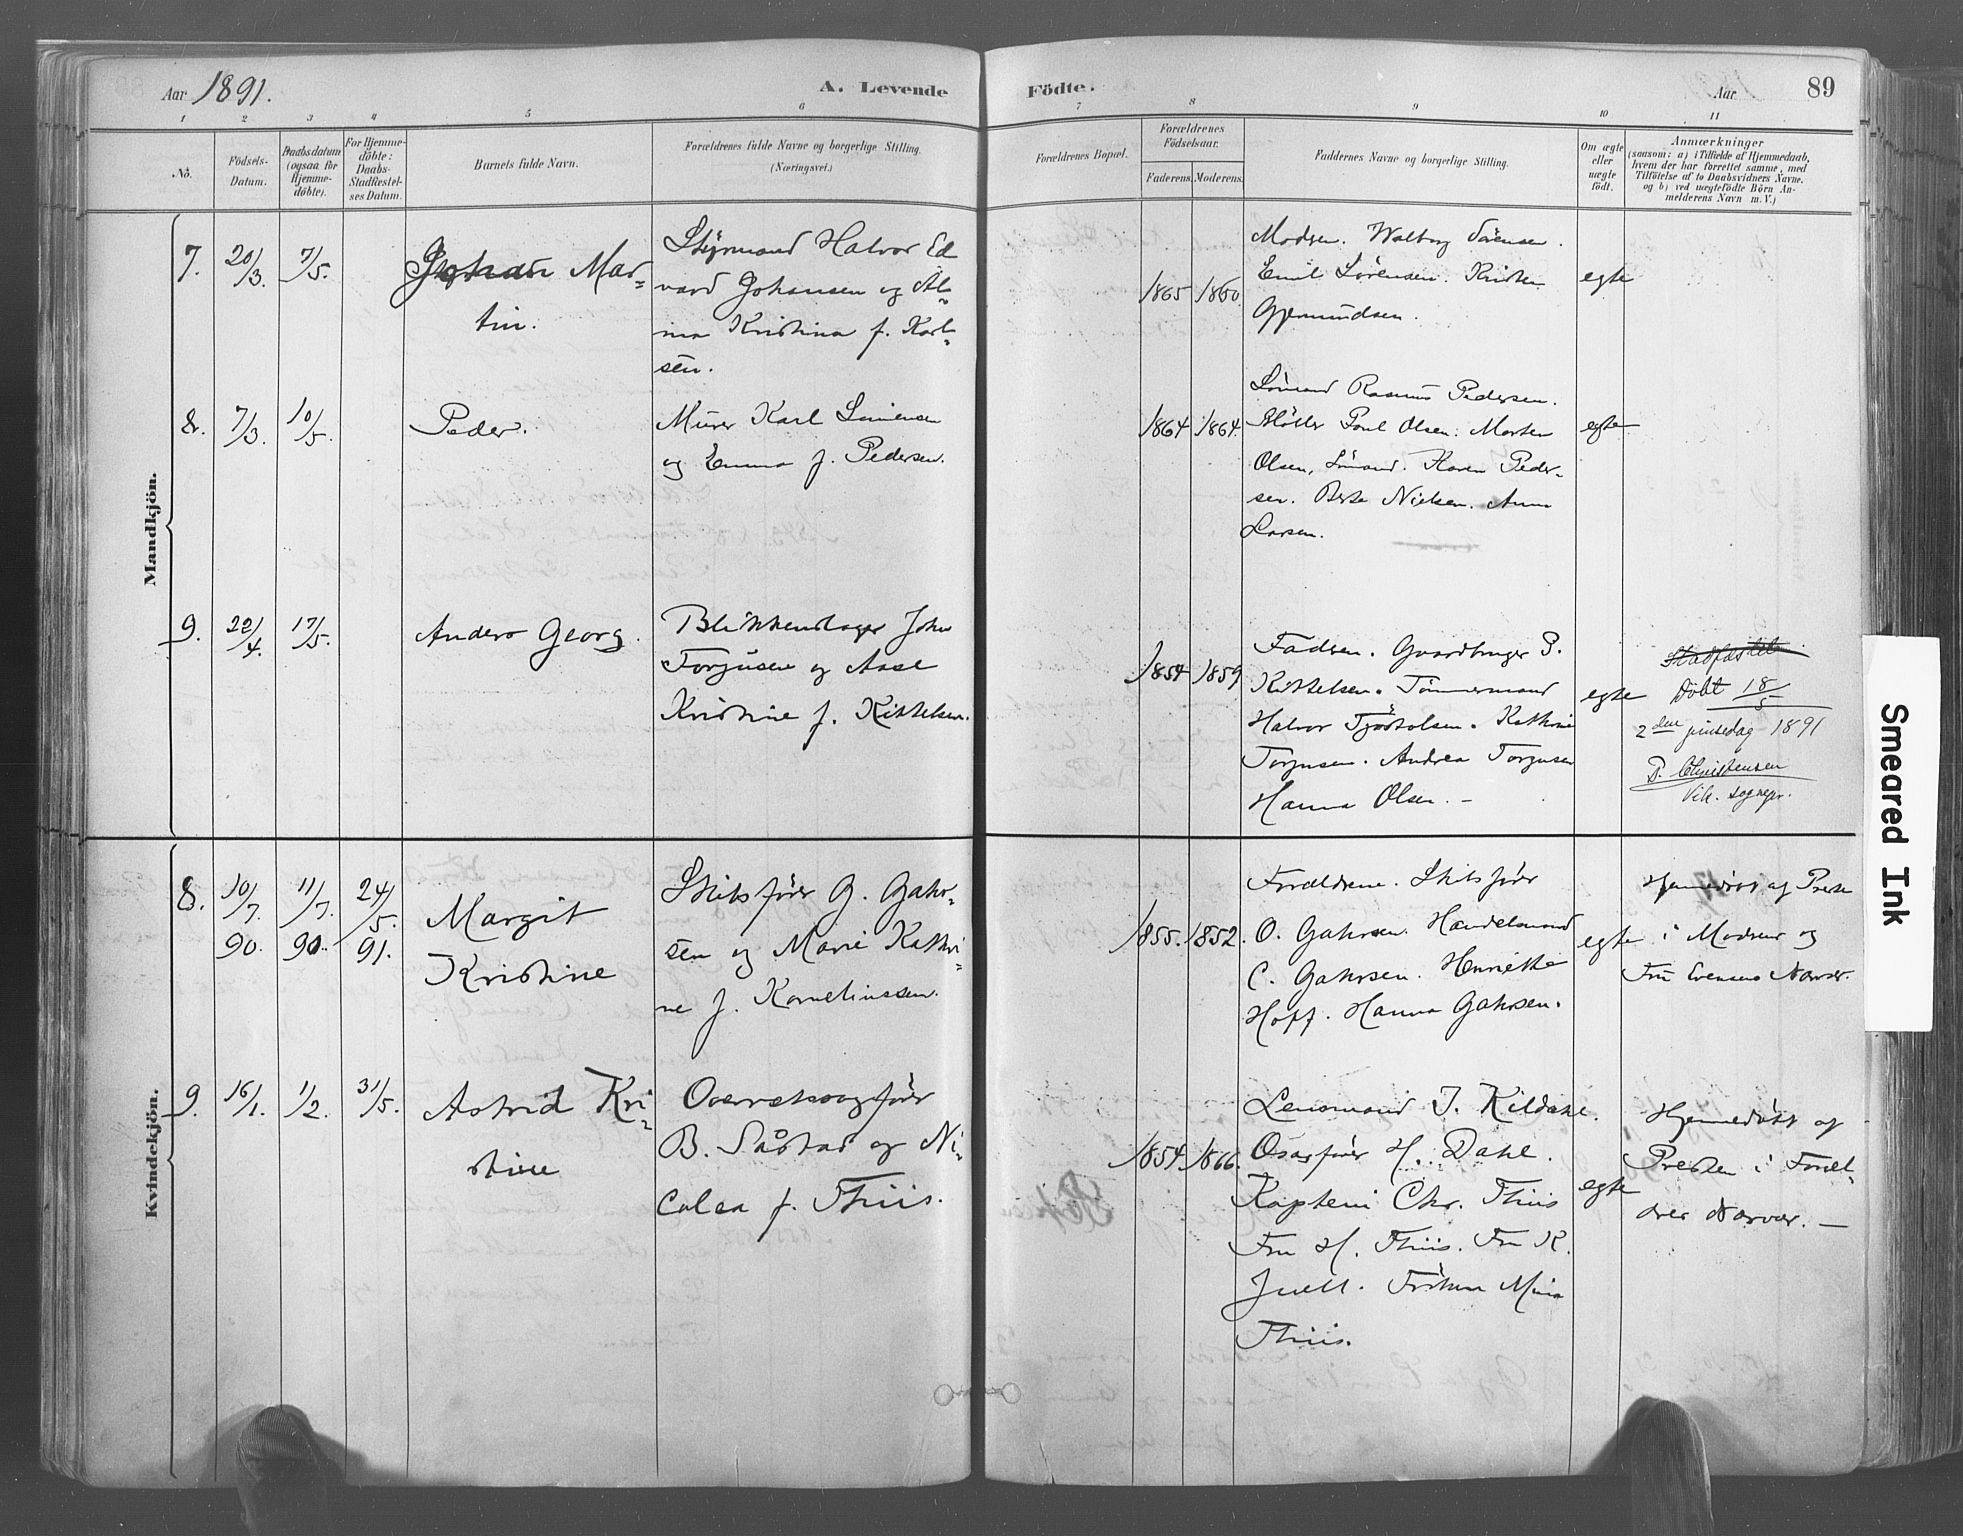 Aar 1891.
A. Levende
Födte.
Aar
89
1 2 3 4 5 6 7 8 9 10 11
No.
Födsels-
Datum.
Daabsdatum
(ogsaa for
Hjemme-
döbte).
For Hjemme-
döbte:
Daabs-
Stadfæstel-
ses Datum.
Barnets fulde Navn.
Forældrenes fulde Navne og borgerlige Stilling.
(Næringsvei.)
Forældrenes Bopæl.
Forældrenes
Födselsaar.
Faderens. Moderens.
Faddernes Navne og borgerlige Stilling.
Om ægte
eller
uægte
födt.
Anmærkninger
(saasom: a) i Tilfælde af Hjemmedaab,
hvem der har forrettet samme, med
Tilföielse af to Daabsvidners Navne,
og b) ved uægtefödte Börn An-
melderens Navn m. V.)
Mandkjön.
7. 20/3. 7/5.
Johan Mar-
tin.
Styrmand Halvor Ed
vard Johansen og Al-
ma Kristina f. Karl-
sen.
1865 1860.
Modren. Walborg Sörensen.
Emil Sörensen. Kristen
Gjermundsen.
egte
8. 7/3. 10/5.
Peder.
Murer Karl Simensen
og Emma f. Pedersen.
1864 1864.
Sömand Rasmus Pedersen.
Poul Olsen. Morten
Olsen, Sömand. Karen Peder-
sen. Berte Nielsen. Anna
Larsen.
egte
9. 22/4. 17/5.
Anders Georg.
Blikkenslager John
Torjusen og Aase
Kristine f. Kittelsen.
1854 1859
Fadren. Gaardbruger P.
Kittelsen. Tömmermand
Halvor Tjöstolsen. Kathrine
Torjusen. Andrea Torjusen
Hanna Olsen. –
egte
Stadfæstet
Döbt 18/5
2den pinsedag 1891
P. Christensen
Vik. sognepr.
Kvindekjön.
8. 10/7. 90. 11/7. 90. 24/5. 91.
Margit
Kristine
Skibsförer G. Gahr-
sen og Marie Kathri-
ne f. Korneliussen.
1855. 1852.
Foreldrene. Skibsförer
O. Gahrsen. Handelsmand
C. Gahrsen. Henriette
Hoff. Hanna Gahrsen.
egte
Hjemedöbt af Presten
i Modrens og
Fru Evensens Nærvær.
9. 16/1. 1/2. 31/5.
Astrid Kri-
stine
Overretssagförer
B. Såstad og Ni-
colea f. Thiis.
1854. 1866.
Lensmand J. Kildahl.
H. Dahl.
Kaptein Chr. Thiis
Fru H. Thiis. Fru K.
Juell. Fröken Mina
Thiis.
egte
Hjemedöbt af
Presten i Forel-
dres Nærvær. –
Smeared Ink